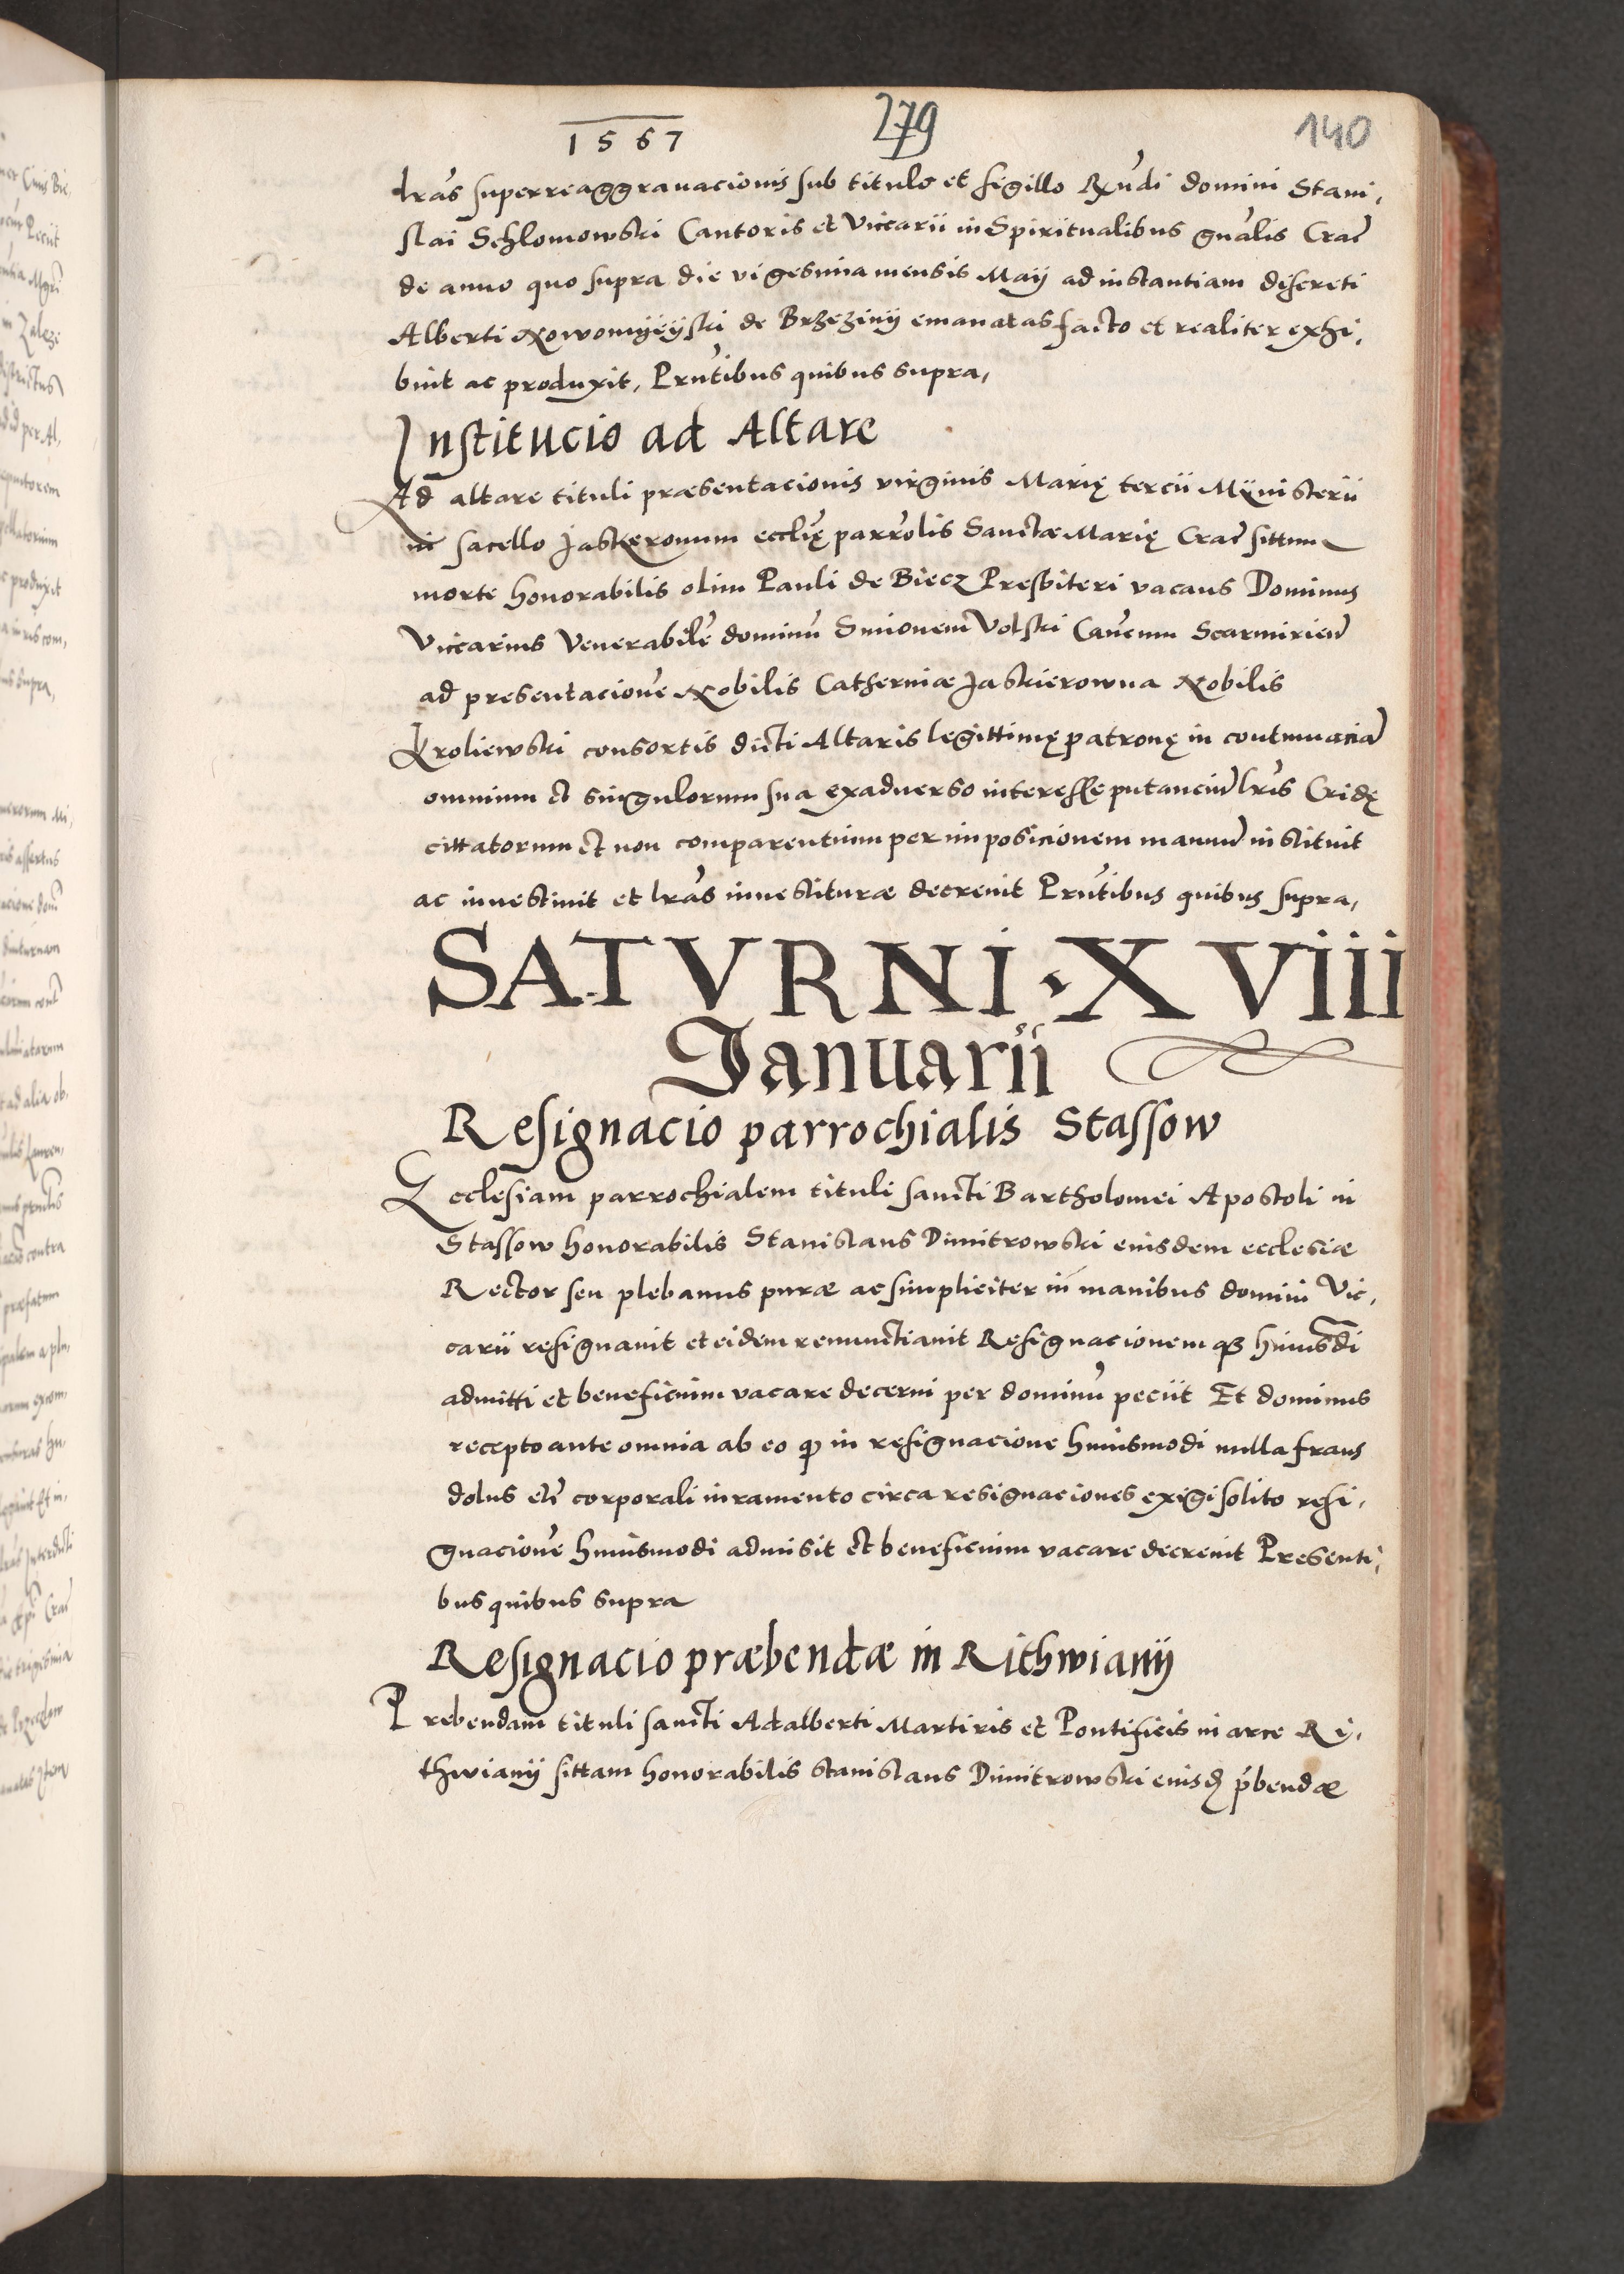 1567
279
140
lrãs superreaggrauacionis sub titulo et sigillo Rxũdi domini Stani,
slai Schlomowski Cantoris et Viccarii in Spiritualibus gnãlis Crac̃
de anno quo supra die vigesima mensis Maij ad instantiam discreti
Alberti Nowomyeyski de Brzezinij emanatas facto et realiter exhi,
buit ac produxit, Prñtibus quibus supra,
Institucio ad Altare
Ad altare tituli præsentacionis virginis Marię tercii Mynisterii
in sacello Jaskeronum ecclię̃ parrõlis Sanctæ Marię Crac̃ sittum
morte honorabilis olim Pauli de Biecz Presbiteri vacans Dominus
Viccarius Venerabilẽ dominũ Simonem Volski Canc̃num Scarmirien̄
ad presentacionẽ Nobilis Catherinæ Jaskierowna Nobilis
Kroliewski consortis dicti Altaris legittimę patronę in contumaciã
omnium et singulorum sua exaduerso interesse putanciũ lrĩs Cridę
cittatorum et non comparentium per impositionem manuũ instituit
ac inuestiuit et lrãs inuestituræ decreuit Prñtibus quibus supra,
SATVRNI · XViii
Januarii
Resignacio parrochialis Stassow
Ecclesiam parrochialem tituli sancti Bartholomei Apostoli in
Stassow honorabilis Stanislaus Dimitrowski eiusdem ecclesiæ
Rector seu plebanus puræ ac simpliciter in manibus domini Vic,
carii resignauit et eidem renunctiauit Resignacionem q3 huiusm̃di
admitti et beneficium vacare decerni per dominũ peciit Et dominus
recepto ante omnia ab eo ꝙ in resignacione huiusmodi nulla fraus
dolus etc̃ corporali iuramento circa resignaciones exigi solito resi,
gnacionẽ huiusmodi admisit et beneficium vacare decreuit Presenti,
bus quibus supra
Resignacio præbendæ in Rithwianij
Prebendam tituli sancti Adalberti Martiris et Pontificis in arce Ri,
thwianij sittam honorabilis Stanislaus Dimitrowski eiusd̃ p̃bendæ